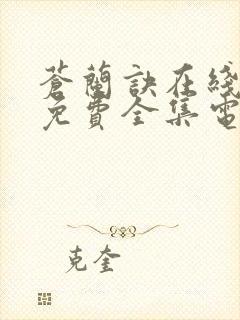 蒼蘭訣在綫
免費全集電
克奎